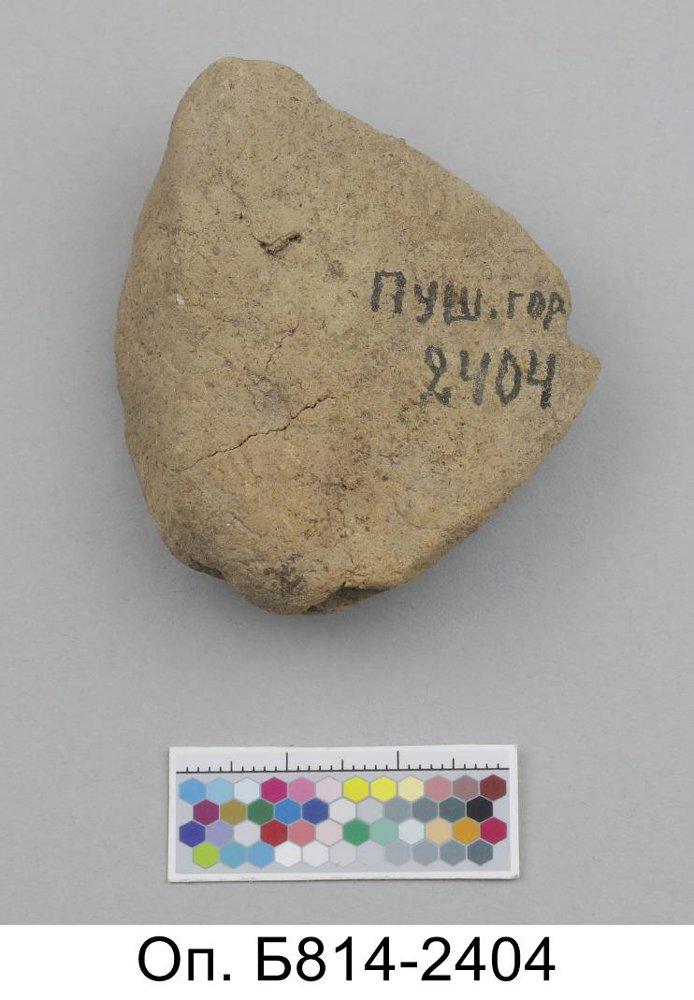 Пуш.гор
2404
Оп. Б814-2404